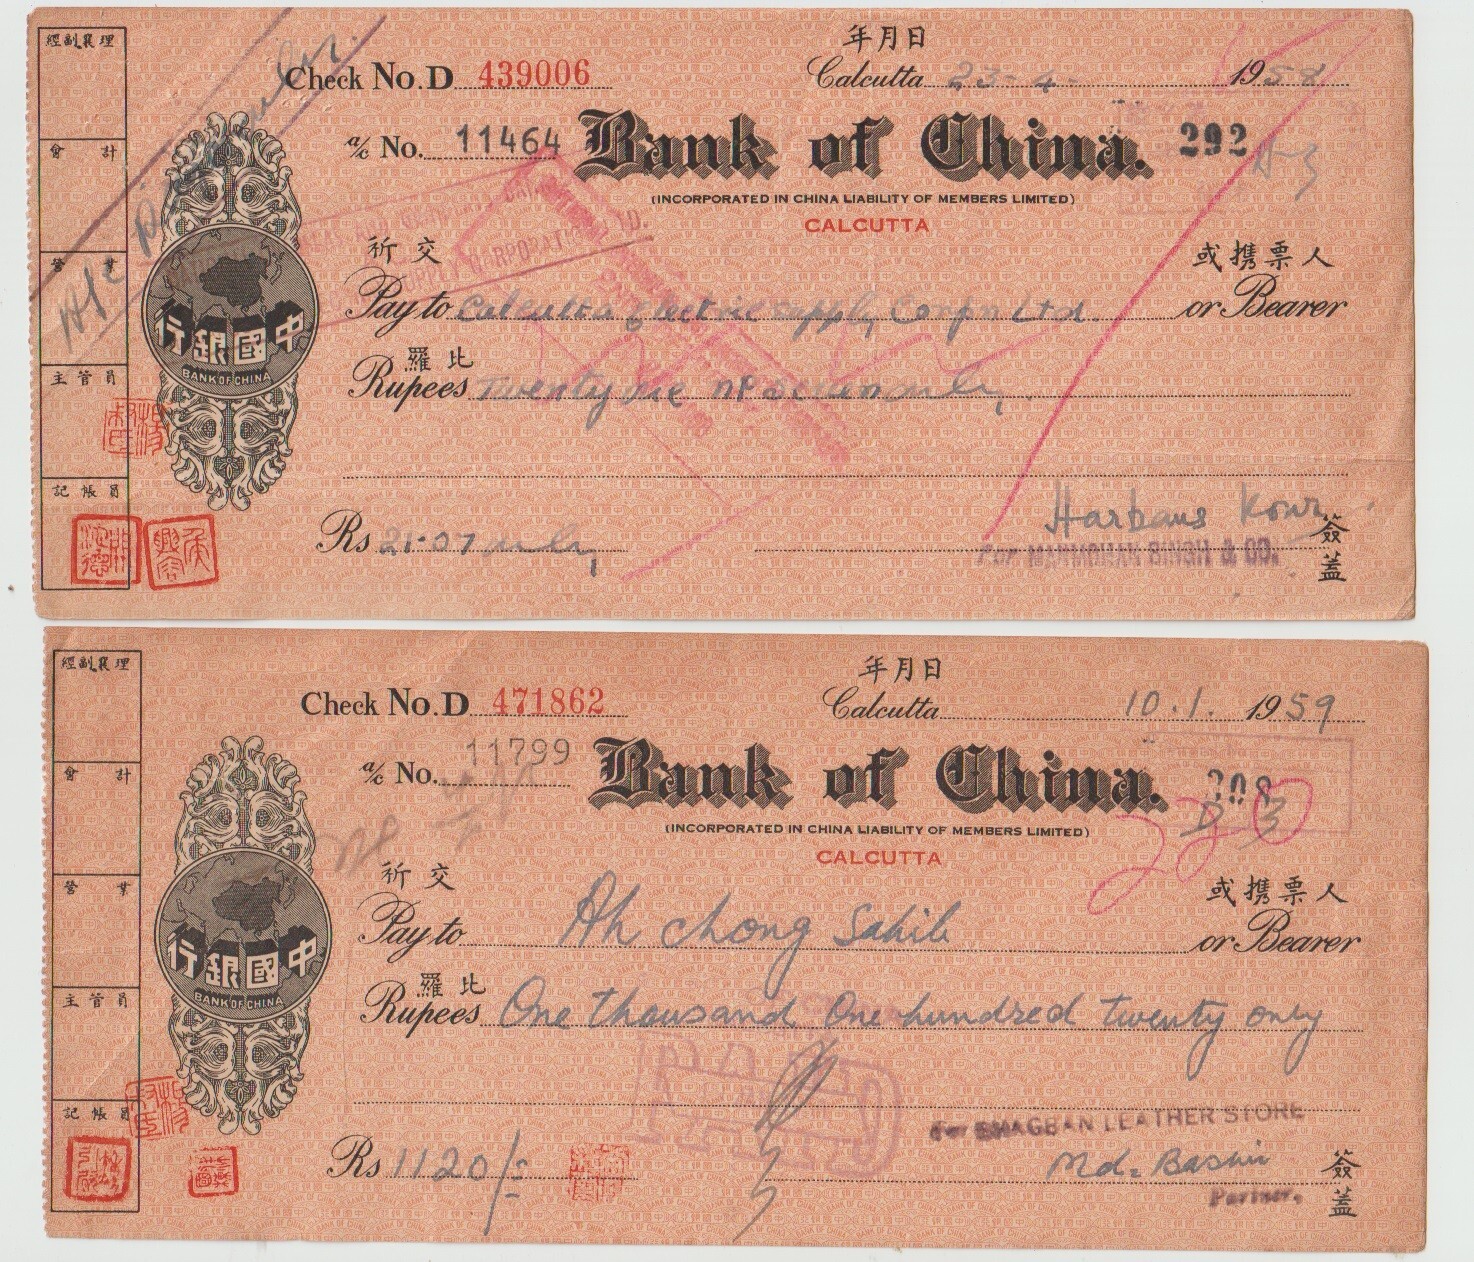 經副襄理
年月日
Check No. D 439006
Calcutta 23-4- 1958
會計
a/c No. 11464
Bank of China.
292
(INCORPORATED IN CHINA LIABILITY OF MEMBERS LIMITED)
CALCUTTA
營業
祈交
或携票人
Pay to Calcutta Electric Supply Corpn Ltd. or Bearer
行銀國中
BANK OF CHINA
羅比
主管員
Rupees Twenty one nP seven only
記帳員
Rs 21.07 only
Harbans Kour
For MANMOHAN SINGH & CO.
簽蓋
經副襄理
年月日
Check No. D 471862
Calcutta 10.1. 1959
會計
a/c No. 11799
Bank of China.
308
D 3
220
(INCORPORATED IN CHINA LIABILITY OF MEMBERS LIMITED)
CALCUTTA
營業
祈交
或携票人
Pay to Ah Chong Sahib or Bearer
行銀國中
BANK OF CHINA
羅比
主管員
Rupees One thousand One hundred twenty only
記帳員
For BHAGBAN LEATHER STORE
Rs 1120/=
Md. Bashir
Partner.
簽蓋